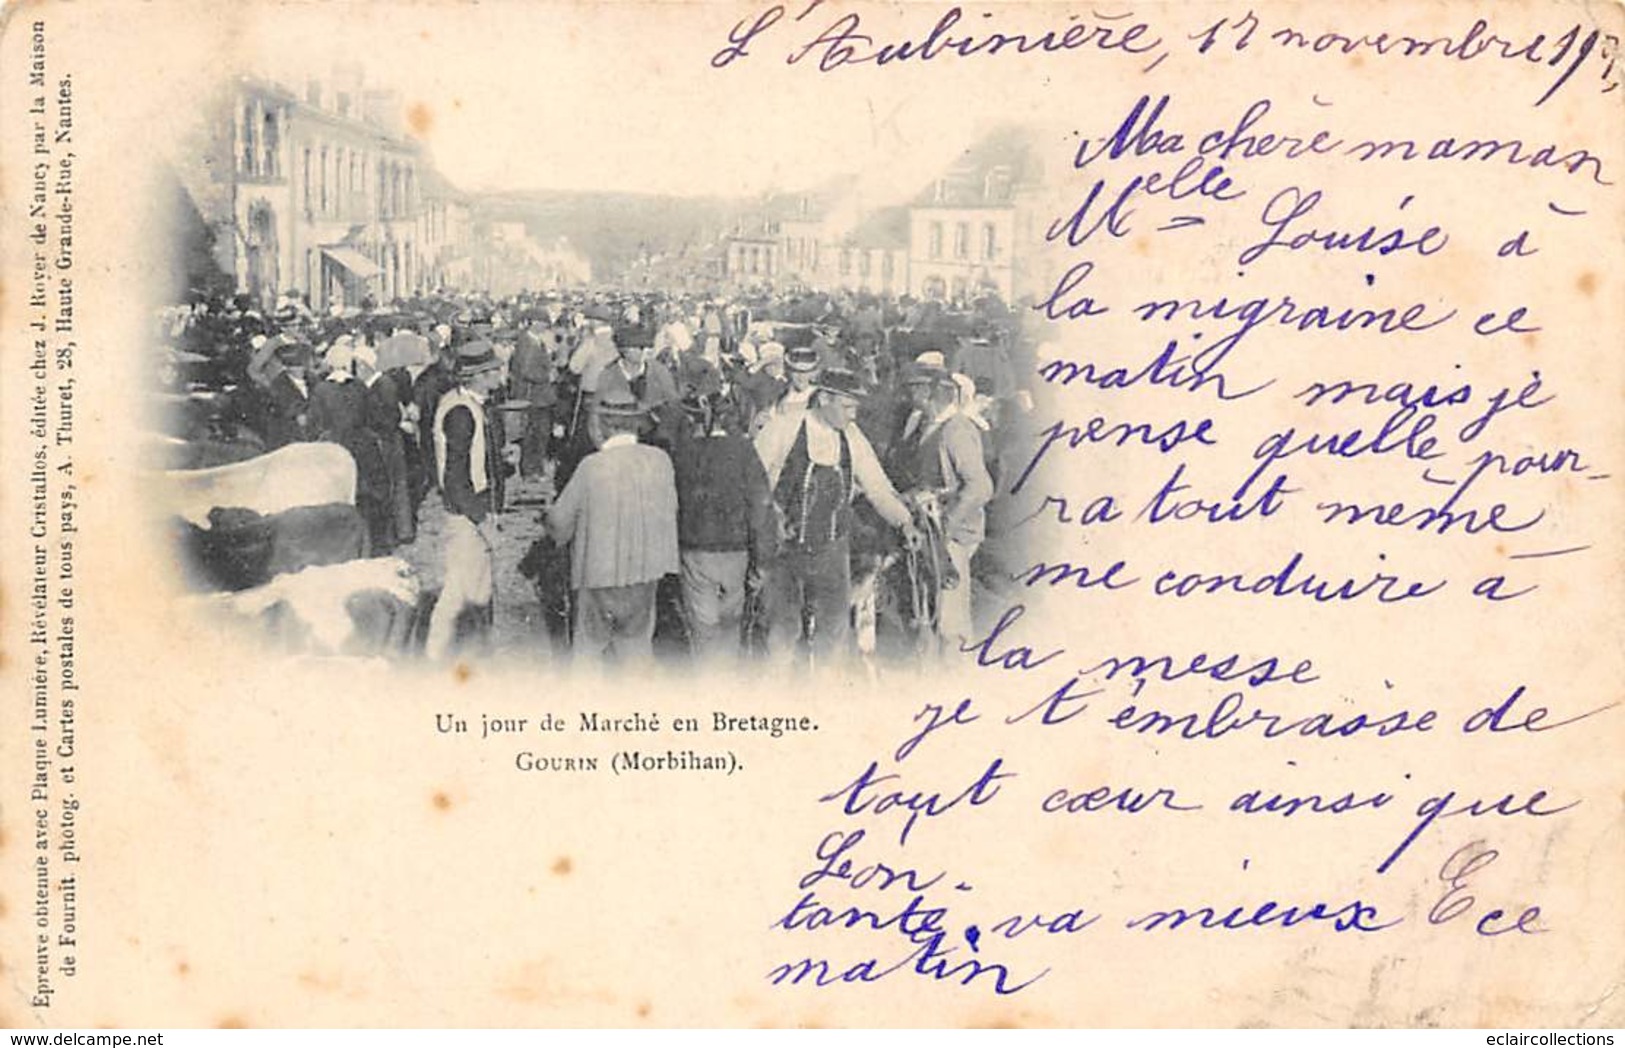 L'Aubinière, 17 novembre
Ma chère maman
Melle Louise à
la migraine ce
matin mais je
pense quelle pour-
ra tout même
me conduire à
la messe
je t'embrasse de
tout cœur ainsi que
Leon.
tante va mieux ce
matin
Un jour de Marché en Bretagne.
GOURIN (Morbihan).
Epreuve obtenue avec Plaque Lumière, Révélateur Cristallos, éditée chez J. Royer de Nancy par la Maison
de Fournit. photog. et Cartes postales de tous pays, A. Thuret, 28, Haute Grande-Rue, Nantes.
eclaircollections